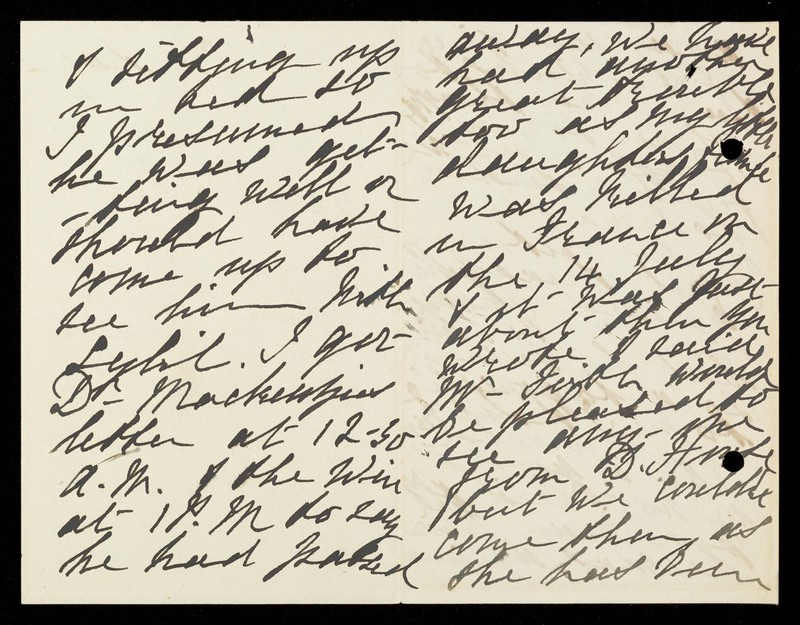 & sitting up
in bed so
I presumed
he was get-
-ting well or
should have
come up to
see him with
Sybil. I got
Dr Mackenzies
letter at 12-30
A.M. & the Wire
at 1 P.M to say
he had passed
away, we have
had another
great trouble
too as my
daughters
was killed
in France on
the 14 July
& it was just
about then you
wrote & said
Mr Firth would
be pleased to
see any-one
from D.
but we couldn't
come then, as
she has been